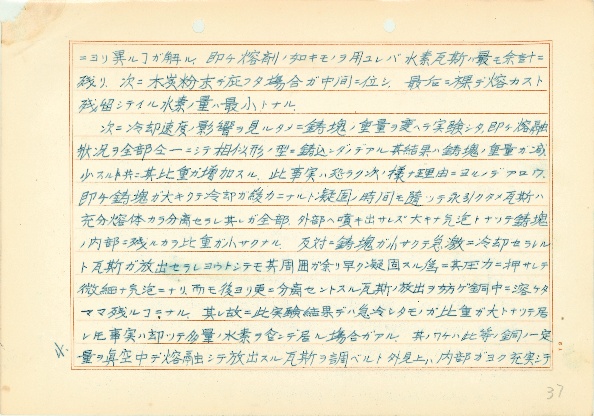 ニヨリ異ルコトガ解ル. 即チ熔剤ノ如キモノヲ用ユレバ水素瓦斯ハ最モ余計ニ
残リ. 次ニ木炭粉末デ庇フタ場合ガ中間ニ位シ. 最后ニ裸デ熔カスト
残留シテイル水素ノ量ハ最小トナル.
次ニ冷却速度ノ影響ヲ見ルタメニ鋳塊ノ重量ヲ変ヘテ実験シタ. 即チ熔融
状況ヲ全部仝一ニシテ相似形ノ型ニ鋳込ンダノデアル. 其結果ハ鋳塊ノ重量ガ減
少スルト共ニ其比重ガ増加スル. 此事実ハ恐ラク次ノ様ナ理由ニヨルノデアロウ.
即チ鋳塊ガ大キクテ冷却ガ緩カニナルト凝固ノ時間モ勝ッテ永引クタメ瓦斯ハ
充分熔体カラ分離セラレ其レガ全部外部ヘ噴キ出サレズ大キナ気泡トナッテ鋳塊
ノ内部ニ残ルカラ比重ガ小サクナル. 反対ニ鋳塊ガ小サクテ急激ニ冷却セラレル
ト瓦斯ガ放出セラレヨウトシテモ其周囲ガ余リ早ク凝固スル為ニ其圧力ニ押サレテ
微細ナ気泡ニナリ. 而モ後ヨリ更ニ分離セントスル瓦斯ノ放出ヲ妨ゲ銅中ニ溶ケタ
ママ残ルコトニナル. 其レ故ニ此実験結果デハ急冷シタモノガ比重ガ大トナッテ居
レ圧事実ハ却ッテ多量ノ水素ヲ含ンデ居ル場合ガアル. 其ノワケハ此等ノ銅ノ一定
量ヲ真空中デ熔融シテ放出スル瓦斯ヲ調ベルト外見上ハ内部ガヨク充実シテ
37